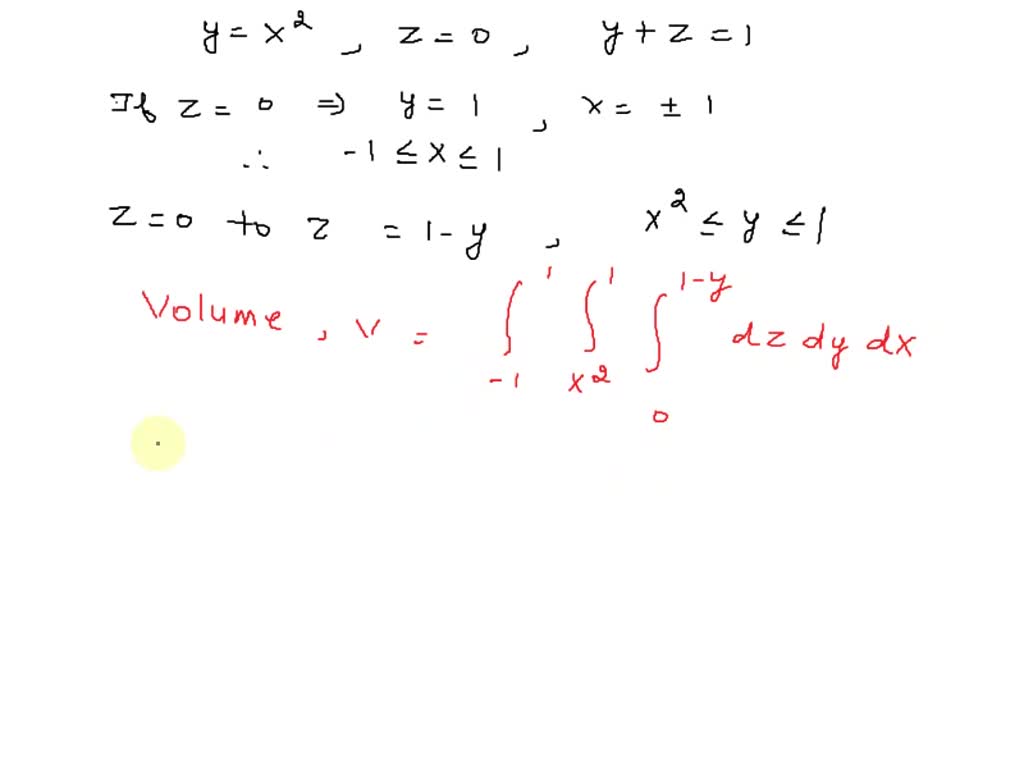 y = x² , z = 0 , y + z = 1
If z = 0 ⇒ y = 1 , x = ± 1
∴ -1 ≤ x ≤ 1
z = 0 to z = 1 - y , x² ≤ y ≤ 1
Volume , V = ∫_{-1}^{1} ∫_{x²}^{1} ∫_{0}^{1-y} dz dy dx